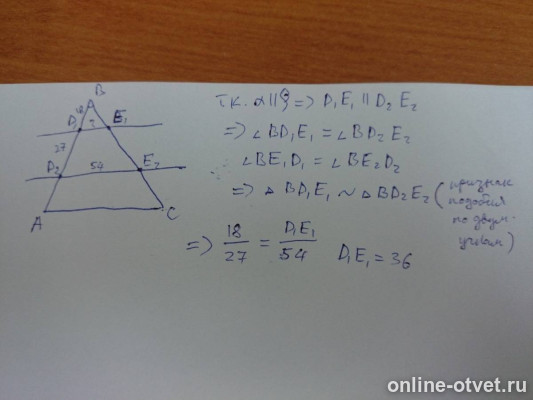 B
D₁ 18 ? E₁
27
D₂ 54 E₂
A C
т.к. α||β => D₁E₁ || D₂E₂
=> ∠BD₁E₁ = ∠BD₂E₂
∠BE₁D₁ = ∠BE₂D₂
=> △BD₁E₁ ~ △BD₂E₂ (признак
подобия
по двум
углам)
=> 18/27 = D₁E₁/54 D₁E₁ = 36
online-otvet.ru